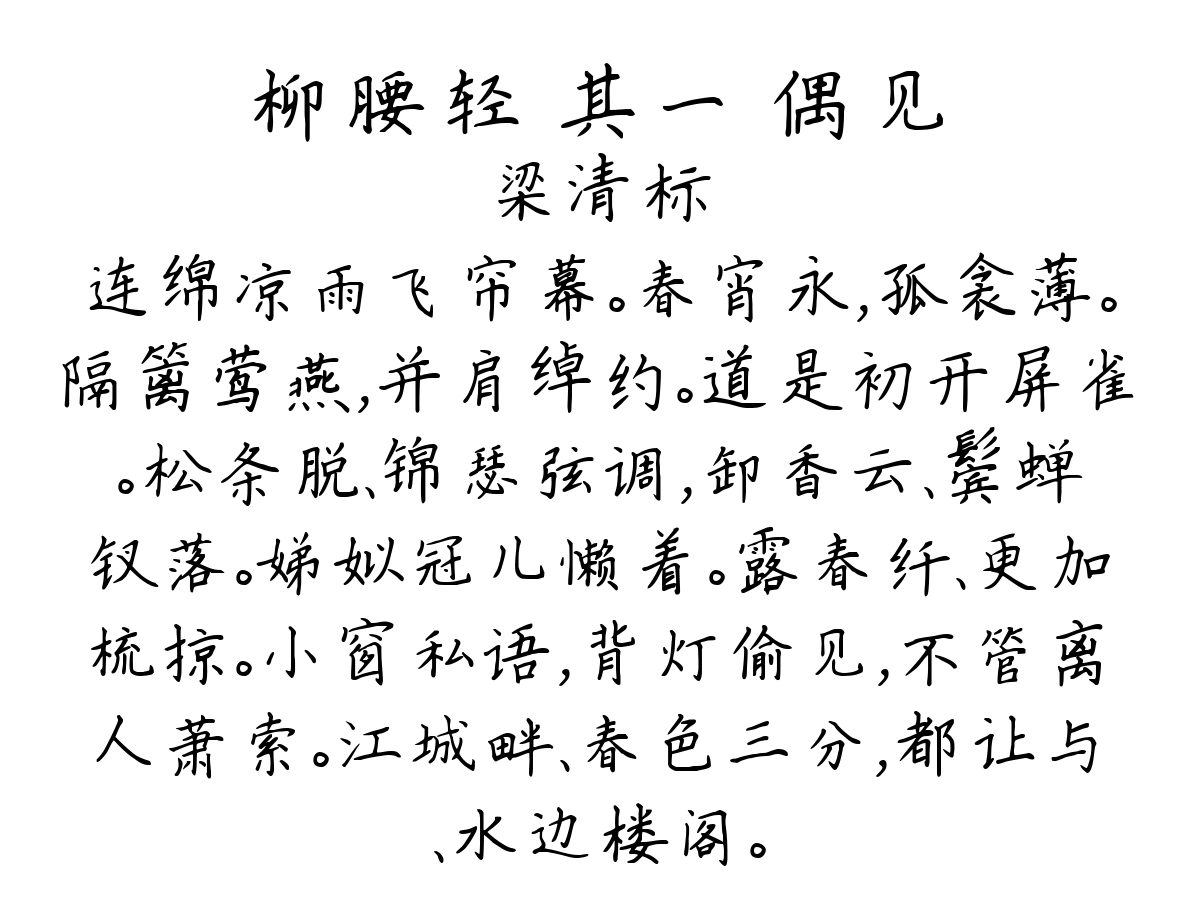 柳腰轻 其一 偶见
梁清标
连绵凉雨飞帘幕。春宵永,孤衾薄。
隔篱莺燕,并肩绰约。道是初开屏雀
。松条脱、锦瑟弦调,卸香云、鬓蝉
钗落。娣姒冠儿懒着。露春纤、更加
梳掠。小窗私语,背灯偷见,不管离
人萧索。江城畔、春色三分,都让与
、水边楼阁。